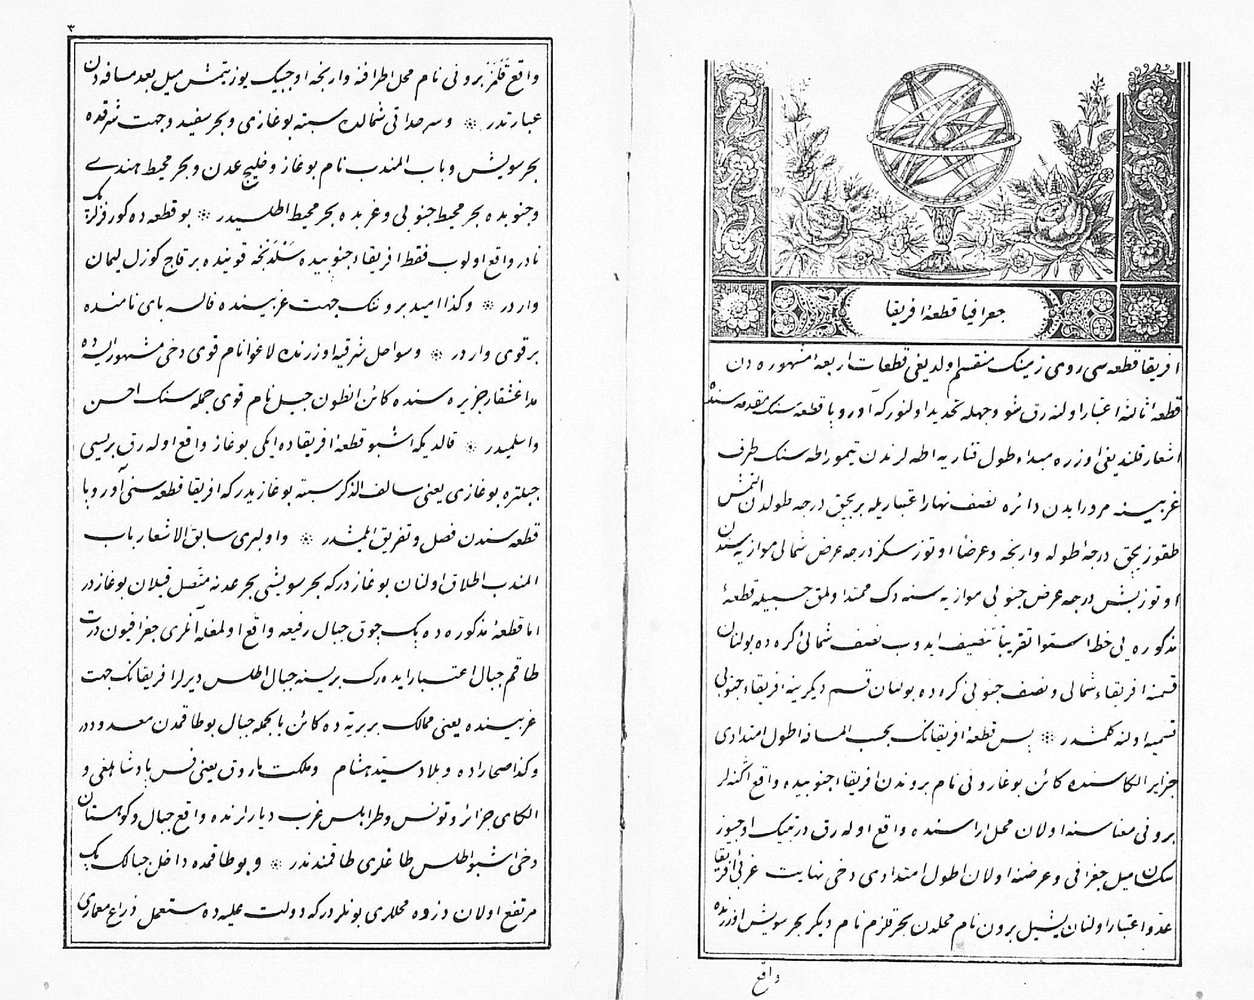 جغرافيا قطعۀ افريقا
افريقا قطعه سى روى زمينك منقسم اولديغى قطعات اربعۀ مشهوره دن
قطعۀ ثالثه اعتبار اولنه رق شو وجهله تحديد اولنور كه آوروپا قطعه سنك مقدمه سنده
اشعار قلنديغى اوزره مبداء طول قناريه اطه لرندن تيمور اطه سنك طرف
غربيسنه مرور ايدن دائره نصف نهار اعتباريله بربچق درجه طولدن التمش
طقوز بچق درجۀ طوله وارنجه وعرضا اوتوز سكز درجه عرض شمالى موازيسندن
اوتوز بش درجه عرض جنوبى موازيسنه دك ممتد اولمق حسبيله قطعۀ
مذكوره يى خط استوا تقريباً تنصيف ايدوب نصف شمالئ كره ده بولنان
قسمنه افريقاء شمالى ونصف جنوبئ كره ده بولنان قسم ديكرينه افريقاء جنوبى
تسميه اولنه كلمشدر ❊ پس قطعۀ افريقانك بحسب المسافه اطول امتدادى
جزاير الكاسنده كائن بوغارونى نام بروندن افريقاء جنوبيده واقع اكنه لر
برونى معناسنه اولان محل اراسنده واقع اوله رق درتبيك اوچيوز
سكسان ميل جغرافى وعرضه اولان اطول امتدادى دخى نهايت غربئ افريقا
عد واعتبار اولنان يشيل برون نام محلدن بحر قلزم نام ديكر بحر سويش اوزرنده
واقع
٣
واقع قلمز برونى نام محل اطرافنه وارنجه اوچبيك يوز يتمش ميل بعد مسافه دن
عبارتدر ❊ وسرحداتى شمالدن سبته بوغازى وبحر سفيد وجهت شرقده
بحر سويش وباب المندب نام بوغاز وخليج عدن وبحر محيط هندى
وجنوبده بحر محيط جنوبى وغربده بحر محيط اطلسيدر ❊ بو قطعه ده كورفزلر پك
نادر واقع اولوب فقط افريقاء جنوبيده قوينده بر قاچ كوزل ليمان
واردر ❊ وكذا اميد برونك جهت غربيسنده فالسه باى نامنده
بر قوى واردر ❊ وسواحل شرقيه اوزرنده لاغوا نام قوى دخى مشهور اليسه ده
مداغشقار جزيره سنده كائن انطون جيل نام قوى جمله سنك احسن
واسلميدر ❊ قالديكه اشبو قطعۀ افريقاده ايكى بوغاز واقع اوله رق بريسى
جبلتره بوغازى يعنى سالف الذكر سبته بوغازيدر كه افريقا قطعه سنى آوروپا
قطعه سندن فصل وتفريق ايلمشدر ❊ واو لبرى سابق الاشعار باب
المندب اطلاق اولنان بوغازدر كه بحر سويشى بحر عدنه متصل قيلان بوغازدر
اما قطعۀ مذكوره ده پك چوق جبال رفيعه واقع اولمغله آنلرى جغرافيون درت
طاقم جبال اعتبار ايده رك بريسنه جبال اطلس ديرلر افريقانك جهت
غربيسنده يعنى ممالك بربريه ده كائن بالجمله جبال بو طاقمدن معدوددر
وكذا صحراده و بلاد سيد هشام وملكت ماروق يعنى فس پادشاهلغى و
الكاى جزائر وتونس وطرابلس غرب ديارلرنده واقع جبال وكوهستان
دخى اشبو اطلس طاغلرى طاقمندندر ❊ و بو طاقمده داخل جبالك پك
مرتفع اولان ذروه محللرى بونلردر كه دولت عليه ده مستعمل ذراع معمارى